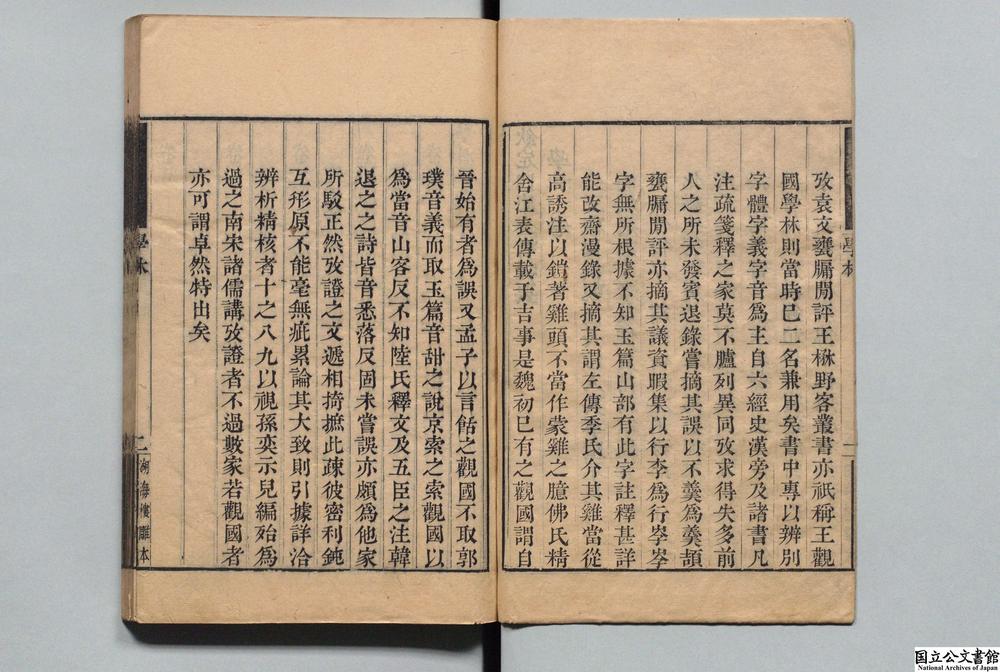 攷袁文甕牖閒評王楙野客叢書亦祇稱王觀
國學林則當時已二名兼用矣書中專以辨別
字體字義字音爲主自六經史漢旁及諸書凡
注疏箋釋之家莫不臚列異同攷求得失多前
人之所未發賓退錄嘗摘其誤以不羹爲羹頡
甕牖閒評亦摘其議資暇集以行李爲行岑岑
字無所根據不知玉篇山部有此字註釋甚詳
能改齋漫錄又摘其謂左傳季氏介其雞當從
高誘注以鎧著雞頭不當作蒙雞之臆佛氏精
舍江表傳載于吉事是魏初已有之觀國謂自
晉始有者爲誤又孟子以言餂之觀國不取郭
璞音義而取玉篇音甜之說京索之索觀國以
爲當音山客反不知陸氏釋文及五臣之注韓
退之之詩皆音悉落反固未嘗誤亦頗爲他家
所駁正然攷證之文遞相掎摭此疎彼密利鈍
互形原不能毫無疵累論其大致則引據詳洽
辨析精核者十之八九以視孫奕示兒編殆爲
過之南宋諸儒講攷證者不過數家若觀國者
亦可謂卓然特出矣
學林
二
湖海樓雕本
学林
国立公文書館
National Archives of Japan